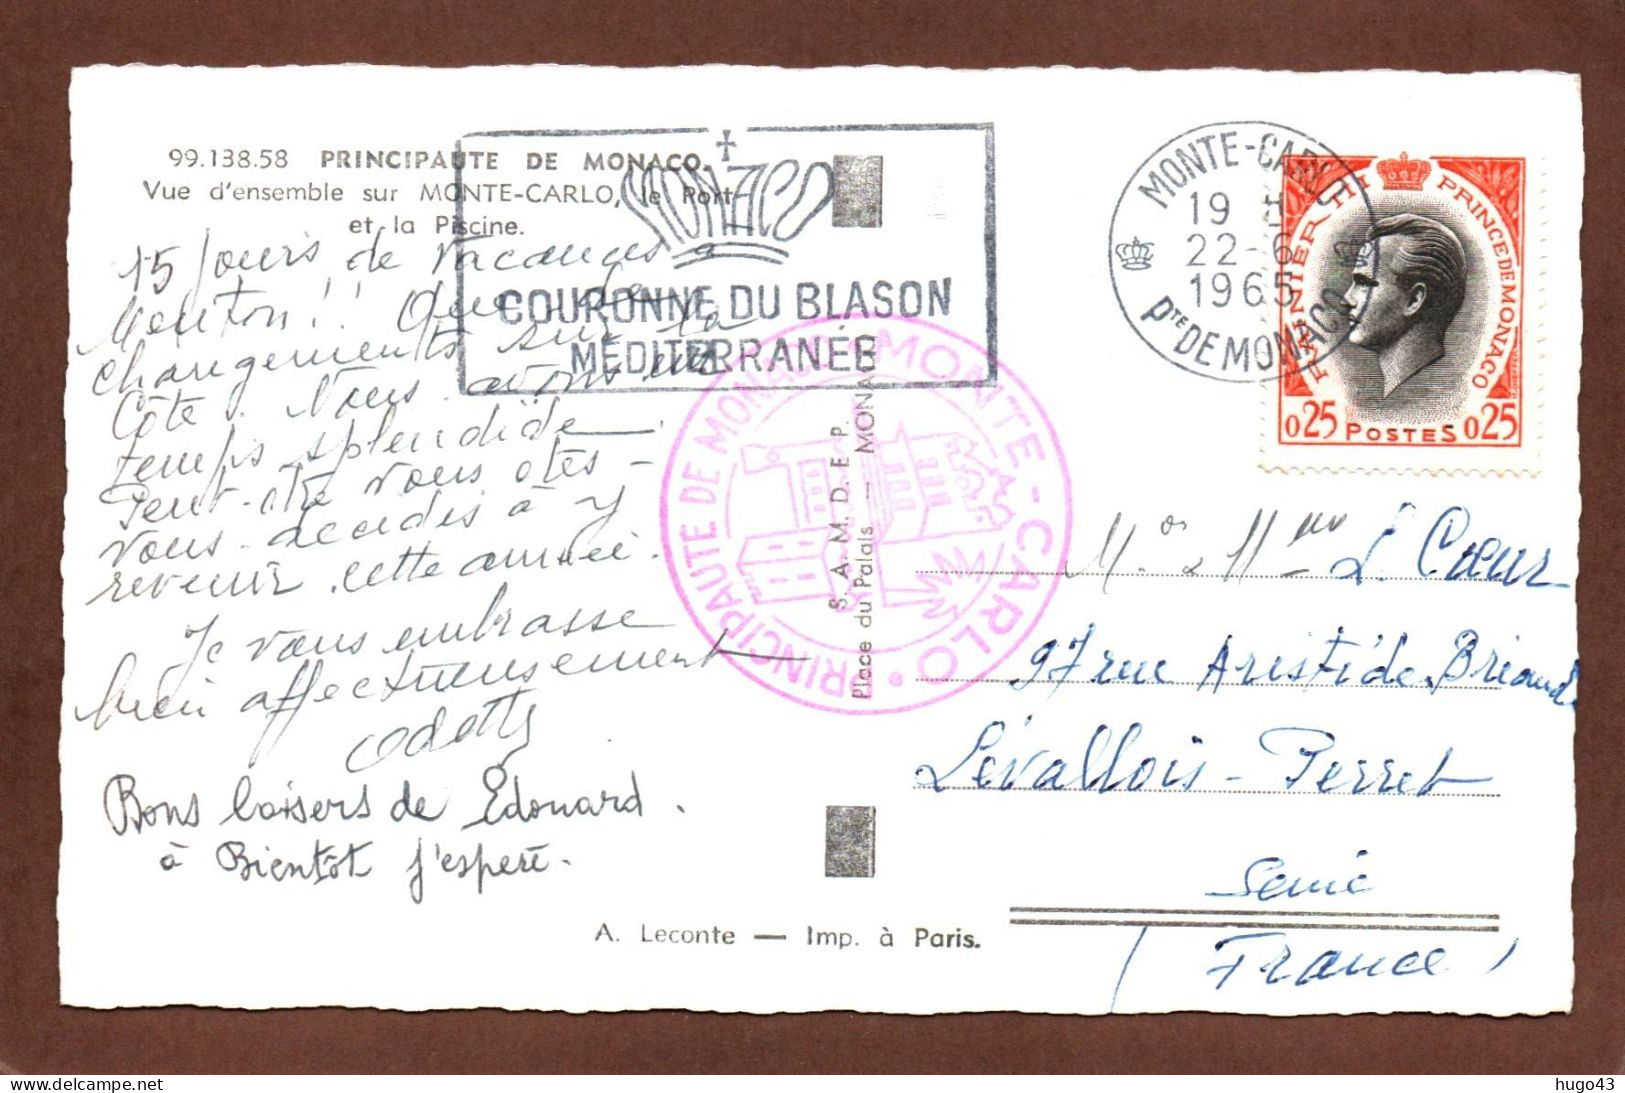 99.138.58 PRINCIPAUTE DE MONACO.
Vue d'ensemble sur MONTE-CARLO, le Port
et la Piscine.
15 Jours de vacances à
Menton!! Que de
changements sur la
Côte. Nous avons un
temps splendide.
Peut-etre vous etes-
vous decidés à y
revenir cette année.
Je vous embrasse
bien affectueusement
Odette
Bons baisers de Edouard.
à Bientôt j'espere.
A. Leconte — Imp. à Paris.
MONACO
COURONNE DU BLASON
MÉDITERRANÉE
PRINCIPAUTE DE MONACO • MONTE-CARLO •
S. A. M. D. E. P.
Place du Palais — MONACO
MONTE-CARLO
19 H
22-6
1965
Pte DE MONACO
RAINIER III PRINCE DE MONACO
0,25 POSTES 0,25
Mr & Mme L. Cœur
97 rue Aristide Briand
Levallois-Perret
Seine
(France)
hugo43